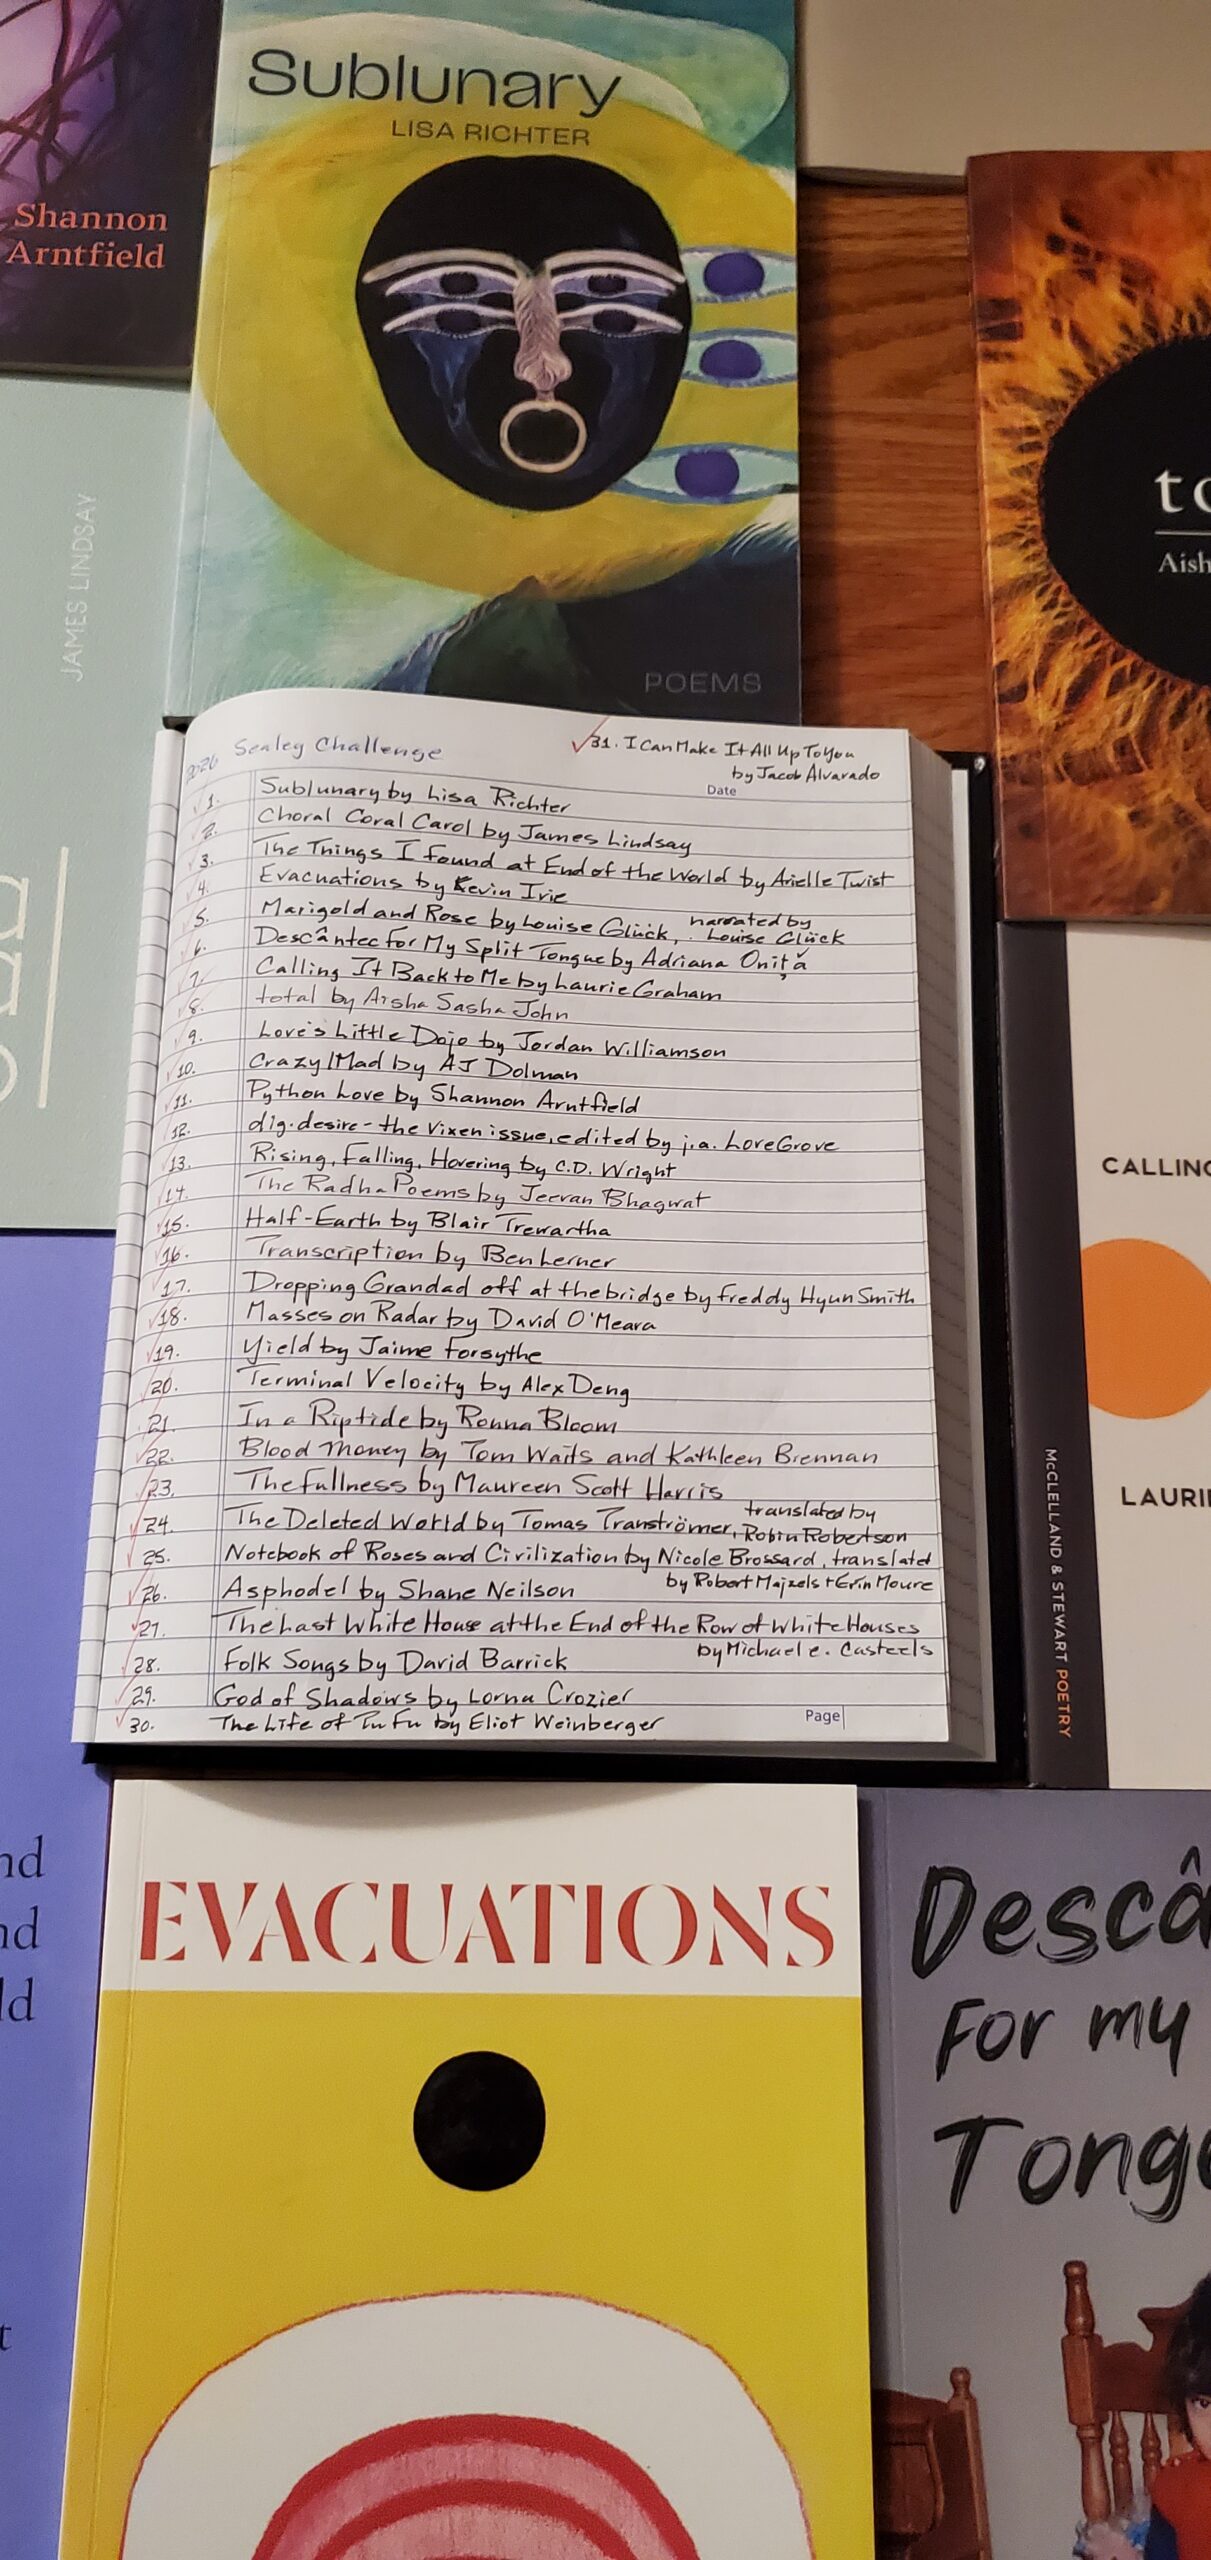 Sublunary
LISA RICHTER
Shannon
Arntfield
JAMES LINDSAY
POEMS
Aish
2026 Sealey Challenge
√31. I Can Make It All Up To You
by Jacob Alvarado
Date
√1. Sublunary by Lisa Richter
√2. Choral Coral Carol by James Lindsay
√3. The Things I found at End of the World by Arielle Twist
√4. Evacuations by Kevin Irie
√5. Marigold and Rose by Louise Glück, narrated by
Louise Glück
√6. Descântec For My Split Tongue by Adriana Oniță
√7. Calling It Back to Me by Laurie Graham
√8. total by Aisha Sasha John
√9. Love's Little Dojo by Jordan Williamson
√10. Crazy/Mad by AJ Dolman
√11. Python Love by Shannon Arntfield
√12. dig. desire - the vixen issue, edited by j.a. LoveGrove
√13. Rising, Falling, Hovering by C.D. Wright
√14. The Radha Poems by Jeevan Bhagwat
√15. Half-Earth by Blair Trewartha
√16. Transcription by Ben Lerner
√17. Dropping Grandad off at the bridge by Freddy Hyun Smith
√18. Masses on Radar by David O'Meara
√19. Yield by Jaime Forsythe
√20. Terminal Velocity by Alex Deng
√21. In a Riptide by Ronna Bloom
√22. Blood Money by Tom Waits and Kathleen Brennan
√23. The Fullness by Maureen Scott Harris
√24. The Deleted World by Tomas Tranströmer, translated by
Robin Robertson
√25. Notebook of Roses and Civilization by Nicole Brossard, translated
by Robert Majzels + Erin Moure
√26. Asphodel by Shane Neilson
√27. The Last White House at the End of the Row of White Houses
by Michael e. Casteels
√28. Folk Songs by David Barrick
√29. God of Shadows by Lorna Crozier
√30. The Life of Tu Fu by Eliot Weinberger
Page
CALLING
LAURIE
McCLELLAND & STEWART POETRY
EVACUATIONS
Descâ
For my
Tong